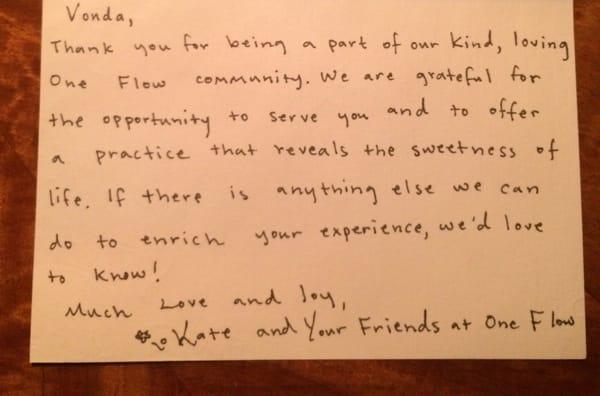 Vonda,
Thank you for being a part of our kind, loving
One Flow community. We are grateful for
the opportunity to serve you and to offer
a practice that reveals the sweetness of
life. If there is anything else we can
do to enrich your experience, we'd love
to know!
Much Love and Joy,
Kate and Your Friends at One Flow